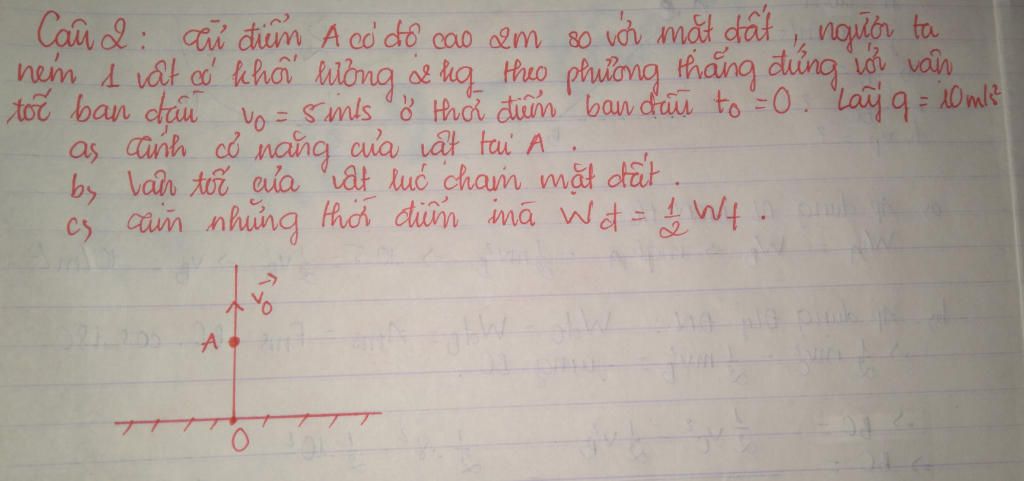 Câu 2: Từ điểm A có độ cao 2m so với mặt đất, người ta
ném 1 vật có khối lượng 2kg theo phương thẳng đứng với vận
tốc ban đầu v₀ = 5m/s ở thời điểm ban đầu t₀ = 0. Lấy g = 10m/s²
a, Tính cơ năng của vật tại A.
b, Vận tốc của vật lúc chạm mặt đất.
c, Tìm những thời điểm mà Wđ = 1/2 Wt.
v₀
A
O